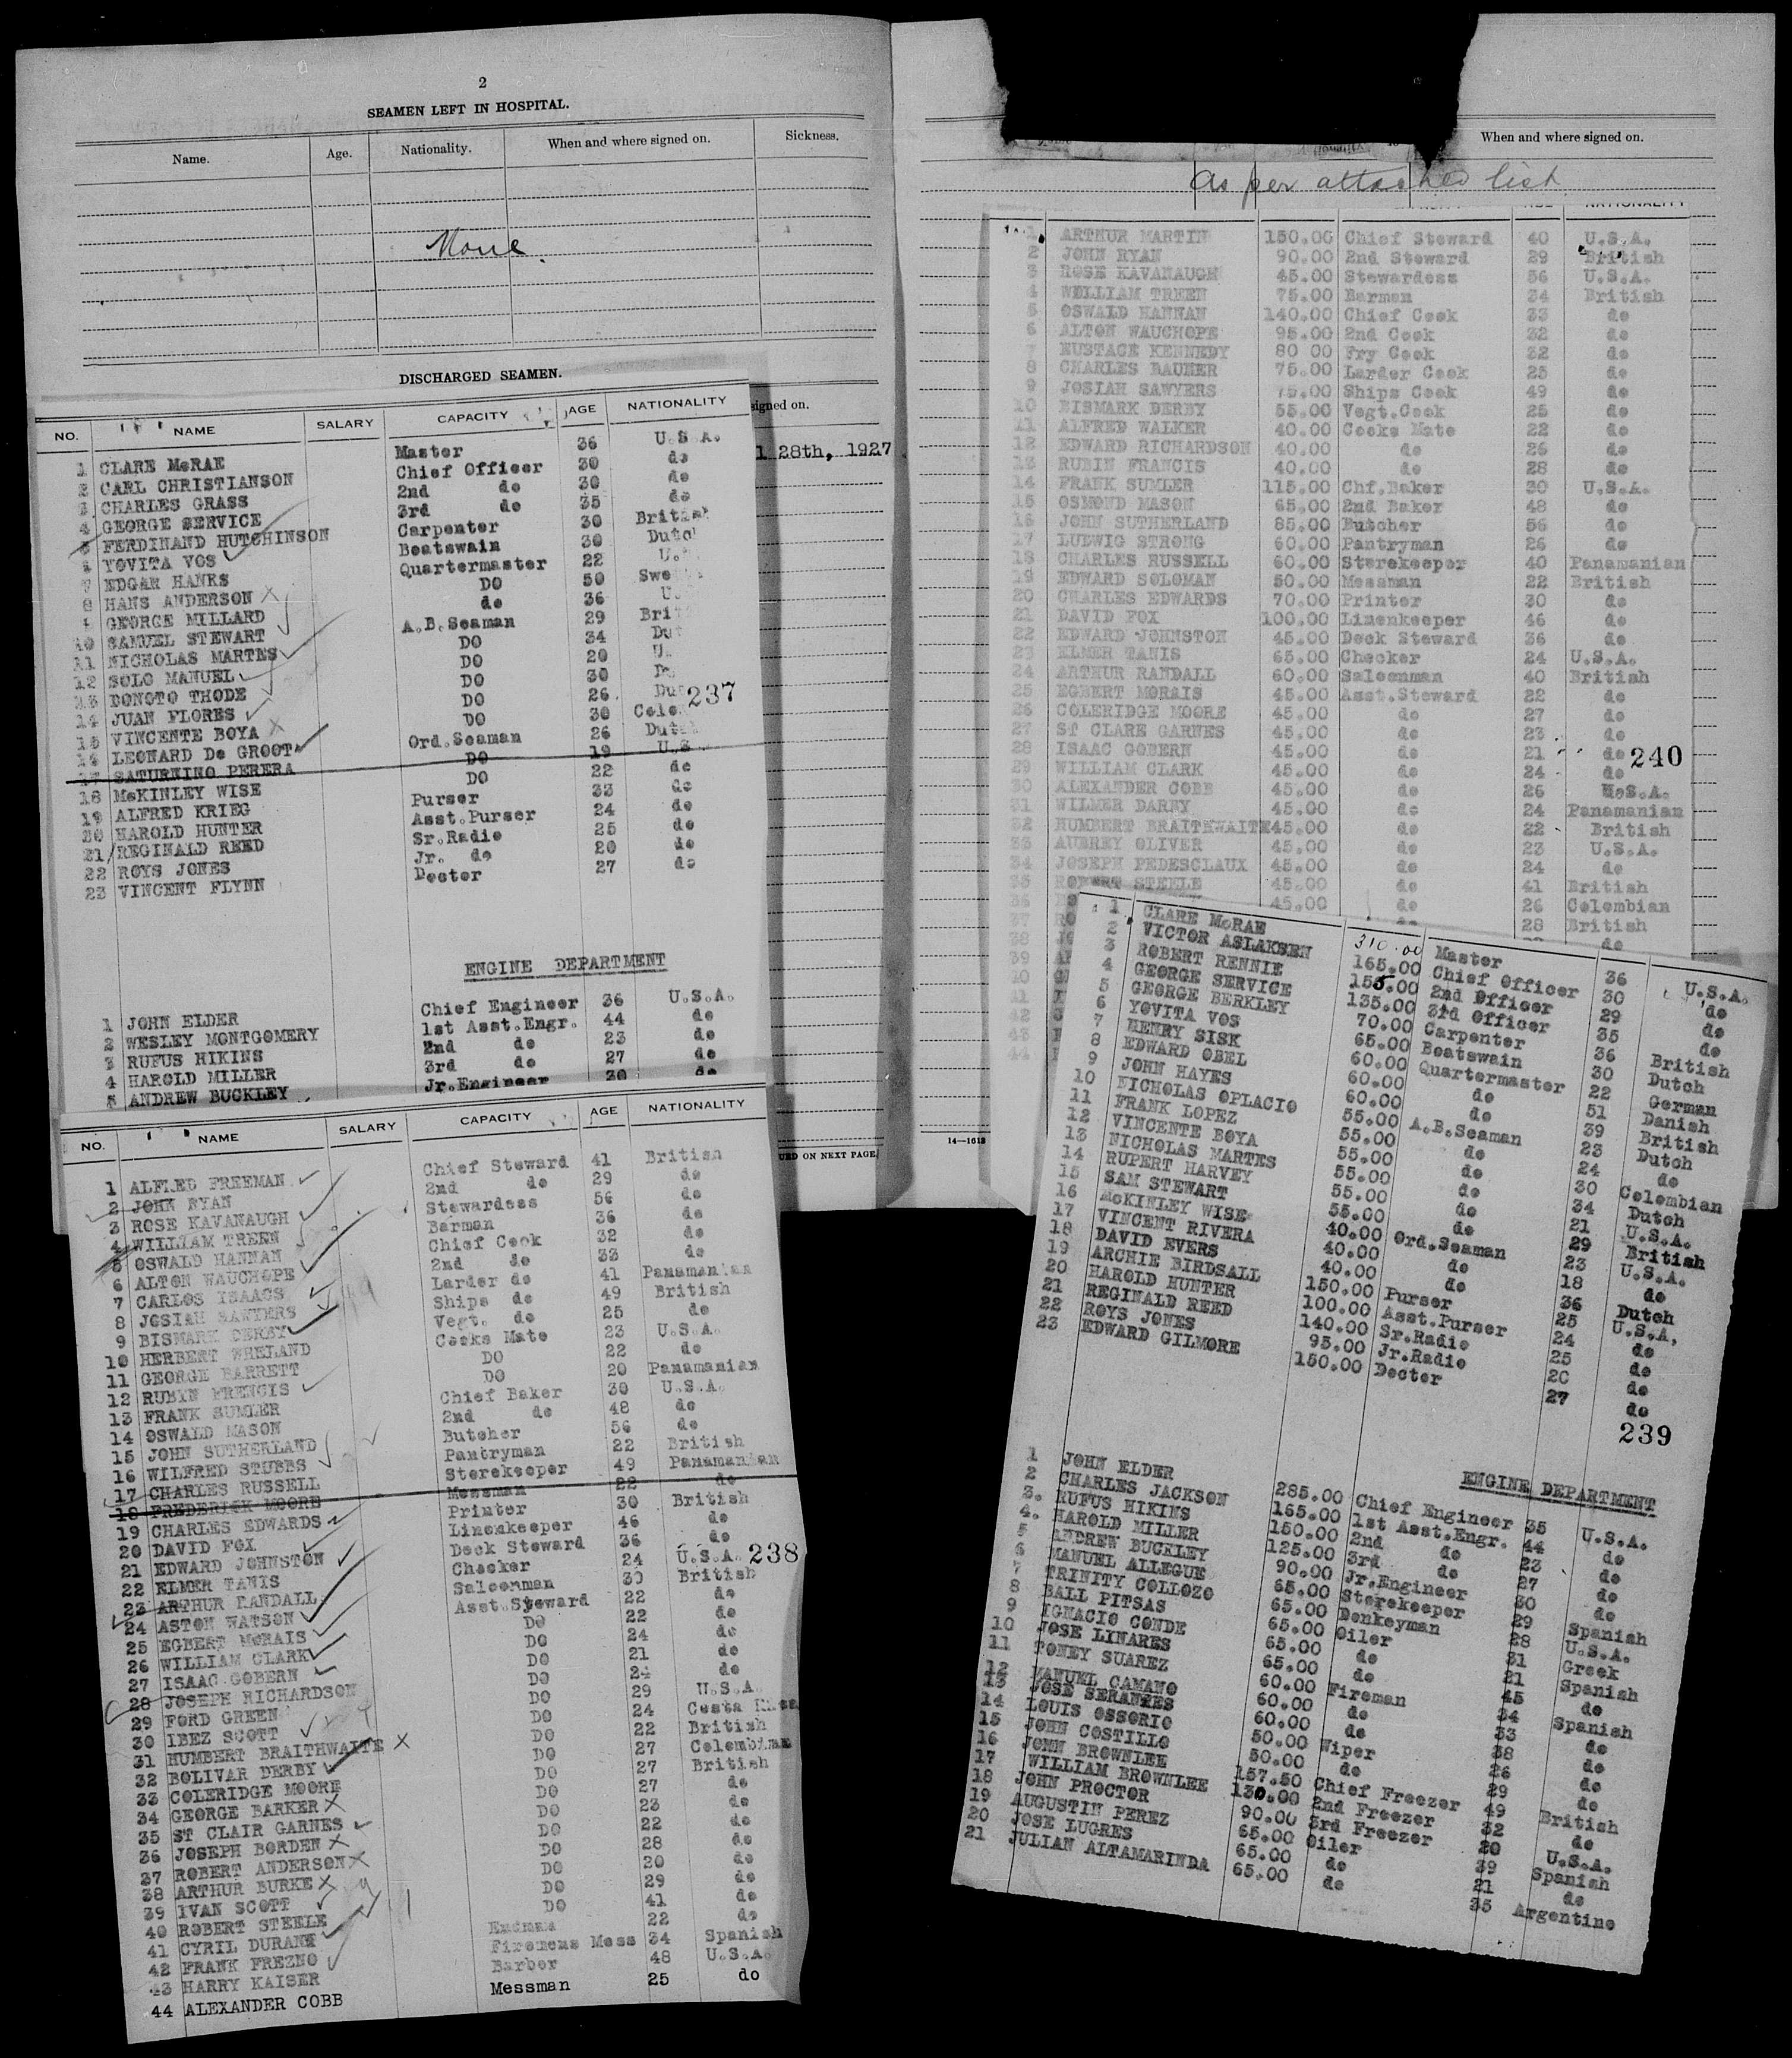 2
SEAMEN LEFT IN HOSPITAL.
Name. Age. Nationality. When and where signed on. Sickness.
None.
DISCHARGED SEAMEN.
signed on.
l 28th, 1927
NO. NAME SALARY CAPACITY AGE NATIONALITY
1 CLARE McRAE Master 36 U.S.A.
2 CARL CHRISTIANSON Chief Officer 30 do
3 CHARLES GRASS 2nd do 30 do
4 GEORGE SERVICE 3rd do 35 do
5 FERDINAND HUTCHINSON Carpenter 30 British
6 YOVITA VOS Boatswain 30 Dutch
7 EDGAR HANKS Quartermaster 22 U.
8 HANS ANDERSON DO 50 Swe
9 GEORGE MILLARD do 36 U.
10 SAMUEL STEWART A.B.Seaman 29 Brit
11 NICHOLAS MARTES DO 34 Dut
12 SOLO MANUEL DO 20 U.
13 DONOTO THODE DO 30 Du
14 JUAN FLORES DO 26 Du
15 VINCENTE BOYA DO 30 Colo
16 LEONARD De GROOT Ord.Seaman 26 Dutch
17 SATURNINO PERERA DO 19 U.S.
18 McKINLEY WISE DO 22 do
19 ALFRED KRIEG Purser 33 do
20 HAROLD HUNTER Asst.Purser 24 do
21 REGINALD REED Sr.Radio 25 do
22 ROYS JONES Jr. do 20 do
23 VINCENT FLYNN Doctor 27 do
237
ENGINE DEPARTMENT
1 JOHN ELDER Chief Engineer 36 U.S.A.
2 WESLEY MONTGOMERY 1st Asst.Engr. 44 do
3 RUFUS HIKINS 2nd do 23 do
4 HAROLD MILLER 3rd do 27 do
5 ANDREW BUCKLEY Jr.Engineer 30 do
NO. NAME SALARY CAPACITY AGE NATIONALITY
1 ALFRED FREEMAN Chief Steward 41 British
2 JOHN RYAN 2nd do 29 do
3 ROSE KAVANAUGH Stewardess 56 do
4 WILLIAM TREEN Barman 36 do
5 OSWALD HANNAN Chief Cook 32 do
6 ALTON WAUCHOPE 2nd do 33 do
7 CARLOS ISAACS Larder do 41 Panamanian
8 JOSIAH SAWYERS Ships do 49 British
9 BISMARK DERBY Vegt. do 25 do
10 HERBERT WHELAND Cooks Mate 23 U.S.A.
11 GEORGE BARRETT DO 22 do
12 RUBIN FRENCIS DO 20 Panamanian
13 FRANK SUMLER Chief Baker 30 U.S.A.
14 OSWALD MASON 2nd do 48 do
15 JOHN SUTHERLAND Butcher 56 do
16 WILFRED STUBBS Pantryman 22 British
17 CHARLES RUSSELL Storekeeper 49 Panamanian
18 FREDERICK MOORE Messman 22 do
19 CHARLES EDWARDS Printer 30 British
20 DAVID FOX Linenkeeper 46 do
21 EDWARD JOHNSTON Deck Steward 36 do
22 ELMER TANIS Checker 24 U.S.A.
23 ARTHUR RANDALL Saloonman 30 British
24 ASTON WATSON Asst.Steward 22 do
25 EGBERT MORAIS DO 22 do
26 WILLIAM CLARK DO 24 do
27 ISAAC GOBERN DO 21 do
28 JOSEPH RICHARDSON DO 24 do
29 FORD GREEN DO 29 U.S.A.
30 IBEZ SCOTT DO 24 Costa Rica
31 HUMBERT BRAITHWAITE DO 22 British
32 BOLIVAR DERBY DO 27 Colombian
33 COLERIDGE MOORE DO 27 British
34 GEORGE BARKER DO 27 do
35 ST CLAIR GARNES DO 23 do
36 JOSEPH BORDEN DO 22 do
37 ROBERT ANDERSON DO 28 do
38 ARTHUR BURKE DO 20 do
39 IVAN SCOTT DO 29 do
40 ROBERT STEELE DO 41 do
41 CYRIL DURANT 22 do
42 FRANK FREZNO Firemens Mess 34 Spanish
43 HARRY KAISER Barber 48 U.S.A.
44 ALEXANDER COBB Messman 25 do
238
ON NEXT PAGE
When and where signed on.
as per attached list
NATIONALITY
1 ARTHUR MARTIN 150.00 Chief Steward 40 U.S.A.
2 JOHN RYAN 90.00 2nd Steward 29 British
3 ROSE KAVANAUGH 45.00 Stewardess 56 U.S.A.
4 WILLIAM TREEN 75.00 Barman 34 British
5 OSWALD HANNAN 140.00 Chief Cook 33 do
6 ALTON WAUCHOPE 95.00 2nd Cook 32 do
7 EUSTACE KENNEDY 80 00 Fry Cook 32 do
8 CHARLES BAUHER 75.00 Larder Cook 25 do
9 JOSIAH SAWYERS 75.00 Ships Cook 49 do
10 BISMARK DERBY 55.00 Vegt.Cook 25 do
11 ALFRED WALKER 40.00 Cooks Mate 22 do
12 EDWARD RICHARDSON 40.00 do 26 do
13 RUBIN FRANCIS 40.00 do 28 do
14 FRANK SUMLER 115.00 Chf.Baker 30 U.S.A.
15 OSMOND MASON 65.00 2nd Baker 48 do
16 JOHN SUTHERLAND 85.00 Butcher 56 do
17 LUDWIG STRONG 60.00 Pantryman 26 do
18 CHARLES RUSSELL 60.00 Storekeeper 40 Panamanian
19 EDWARD SOLOMAN 50.00 Messman 22 British
20 CHARLES EDWARDS 70.00 Printer 30 do
21 DAVID FOX 100.00 Linenkeeper 46 do
22 EDWARD JOHNSTON 45.00 Deck Steward 36 do
23 ELMER TANIS 65.00 Checker 24 U.S.A.
24 ARTHUR RANDALL 60.00 Saloonman 40 British
25 EGBERT MORAIS 45.00 Asst.Steward 22 do
26 COLERIDGE MOORE 45.00 do 27 do
27 ST CLARE GARNES 45.00 do 23 do
28 ISAAC GOBERN 45.00 do 21 do
29 WILLIAM CLARK 45.00 do 24 do
30 ALEXANDER COBB 45.00 do 26 U.S.A.
31 WILMER DARBY 45.00 do 24 Panamanian
32 HUMBERT BRAITHWAITE 45.00 do 22 British
33 AUBREY OLIVER 45.00 do 23 U.S.A.
34 JOSEPH PEDESCLAUX 45.00 do 24 do
35 ROBERT STEELE 45.00 do 41 British
36 45.00 do 26 Colombian
37 RO 28 British
38 do
39
40
41
42
43
44
240
14—1618
1 CLARE McRAE 310.00 Master 36 U.S.A.
2 VICTOR ASLAKSEN 165.00 Chief Officer 30 do
3 ROBERT RENNIE 155.00 2nd Officer 29 do
4 GEORGE SERVICE 135.00 3rd Officer 35 do
5 GEORGE BERKLEY 70.00 Carpenter 36 British
6 YOVITA VOS 65.00 Boatswain 30 Dutch
7 HENRY SISK 60.00 Quartermaster 22 German
8 EDWARD OBEL 60.00 do 51 Danish
9 JOHN HAYES 60.00 do 39 British
10 NICHOLAS OPLACIO 55.00 A.B.Seaman 23 Dutch
11 FRANK LOPEZ 55.00 do 24 do
12 VINCENTE BOYA 55.00 do 30 Colombian
13 NICHOLAS MARTES 55.00 do 34 Dutch
14 RUPERT HARVEY 55.00 do 21 U.S.A.
15 SAM STEWART 55.00 do 29 British
16 McKINLEY WISE 40.00 Ord.Seaman 23 U.S.A.
17 VINCENT RIVERA 40.00 do 18 do
18 DAVID EVERS 40.00 do 36 Dutch
19 ARCHIE BIRDSALL 150.00 Purser 25 U.S.A.
20 HAROLD HUNTER 100.00 Asst.Purser 24 do
21 REGINALD REED 140.00 Sr.Radio 25 do
22 ROYS JONES 95.00 Jr.Radio 20 do
23 EDWARD GILMORE 150.00 Doctor 27 do
239
ENGINE DEPARTMENT
1 JOHN ELDER 285.00 Chief Engineer 35 U.S.A.
2 CHARLES JACKSON 165.00 1st Asst.Engr. 44 do
3. RUFUS HIKINS 150.00 2nd do 23 do
4. HAROLD MILLER 125.00 3rd do 27 do
5 ANDREW BUCKLEY 90.00 Jr.Engineer 30 do
6 MANUEL ALLEGUE 65.00 Storekeeper 29 Spanish
7 TRINITY COLLOZO 65.00 Donkeyman 28 U.S.A.
8 BALL PITSAS 65.00 Oiler 31 Greek
9 IGNACIO CONDE 65.00 do 21 Spanish
10 JOSE LINARES 65.00 do 45 do
11 TONEY SUAREZ 60.00 Fireman 34 Spanish
12 MANUEL CAMANO 60.00 do 33 do
13 JOSE SERANTES 60.00 do 38 do
14 LOUIS OSSORIO 50.00 Wiper 26 do
15 JOHN COSTILLO 50.00 do 29 do
16 JOHN BROWNLEE 157.50 Chief Freezer 49 British
17 WILLIAM BROWNLEE 130.00 2nd Freezer 32 do
18 JOHN PROCTOR 90.00 3rd Freezer 20 U.S.A.
19 AUGUSTIN PEREZ 65.00 Oiler 39 Spanish
20 JOSE LUGRES 65.00 do 21 do
21 JULIAN ALTAMARINDA 65.00 do 35 Argentino